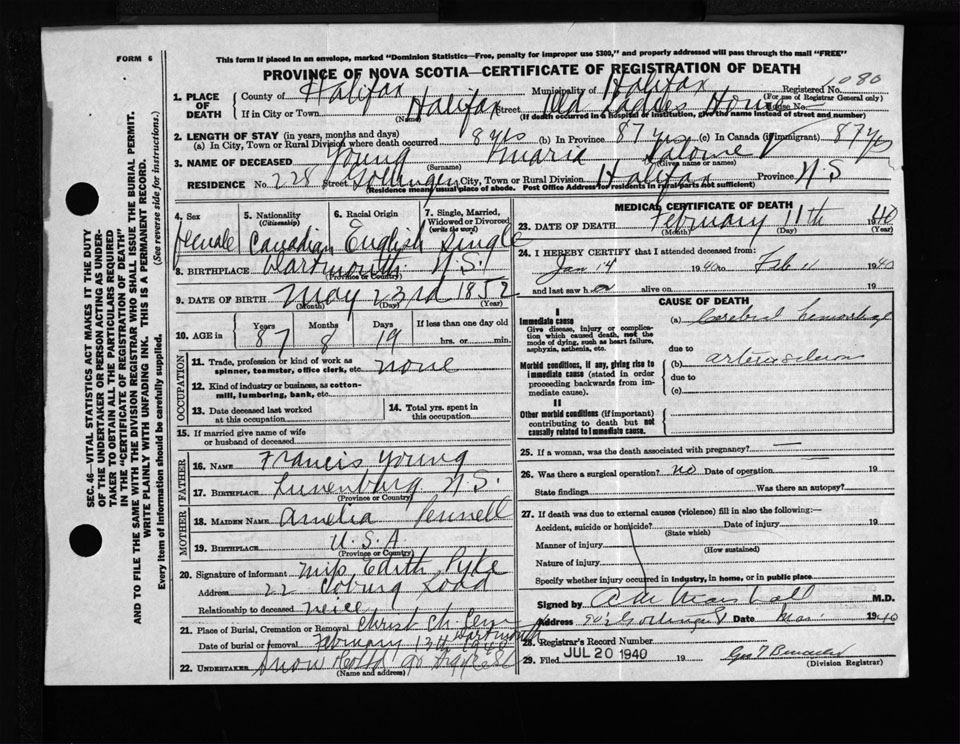 FORM 6
This form if placed in an envelope, marked "Dominion Statistics—Free, penalty for improper use $300," and properly addressed will pass through the mail "FREE"
PROVINCE OF NOVA SCOTIA—CERTIFICATE OF REGISTRATION OF DEATH
SEC. 46—VITAL STATISTICS ACT MAKES IT THE DUTY
OF THE UNDERTAKER OR PERSON ACTING AS UNDER-
TAKER TO OBTAIN ALL THE PARTICULARS REQUIRED
IN THE "CERTIFICATE OF REGISTRATION OF DEATH"
AND TO FILE THE SAME WITH THE DIVISION REGISTRAR WHO SHALL ISSUE THE BURIAL PERMIT.
WRITE PLAINLY WITH UNFADING INK. THIS IS A PERMANENT RECORD.
Every item of Information should be carefully supplied. (See reverse side for instructions.)
1. PLACE OF DEATH County of Halifax Municipality of Halifax Registered No. 1080
(For use of Registrar General only)
If in City or Town Halifax (Name) Street Old Ladies Home House No.
(If death occurred in a hospital or institution, give the name instead of street and number)
2. LENGTH OF STAY (in years, months and days)
(a) In City, Town or Rural Division where death occurred 8 yrs (b) In Province 87 yrs (c) In Canada (if immigrant) 87 yrs
3. NAME OF DECEASED Young Maria Salome V
(Surname) (Given name or names)
RESIDENCE No. 228 Street Gottingen City, Town or Rural Division Halifax Province N S
(Residence means usual place of abode. Post Office Address for residents in rural parts not sufficient)
4. Sex 5. Nationality (Citizenship) 6. Racial Origin 7. Single, Married, Widowed or Divorced (write the word)
female Canadian English Single
8. BIRTHPLACE Dartmouth N.S.
(Province or Country)
9. DATE OF BIRTH May 23rd 1852
(Month) (Day) (Year)
10. AGE in Years 87 Months 8 Days 19 If less than one day old hrs. or min.
OCCUPATION
11. Trade, profession or kind of work as spinner, teamster, office clerk, etc. none
12. Kind of industry or business, as cotton-mill, lumbering, bank, etc.
13. Date deceased last worked at this occupation
14. Total yrs. spent in this occupation
15. If married give name of wife or husband of deceased
FATHER
16. NAME Francis Young
17. BIRTHPLACE Lunenburg N.S.
(Province or Country)
MOTHER
18. MAIDEN NAME Amelia Pennell
19. BIRTHPLACE U.S.A.
(Province or Country)
20. Signature of informant Miss Edith Pyke
Address 22 Coburg Road
Relationship to deceased neice
21. Place of Burial, Cremation or Removal Christ Ch. Cem Dartmouth
Date of burial or removal February 13th 1940
22. UNDERTAKER Snow Co Ltd 90 Argyle St
(Name and address)
MEDICAL CERTIFICATE OF DEATH
23. DATE OF DEATH February 11th 1940
(Month) (Day) (Year)
24. I HEREBY CERTIFY that I attended deceased from:
Jan 14 1940 to Feb 11 1940
and last saw h er alive on 19
CAUSE OF DEATH
I
Immediate cause
Give disease, injury or complication which caused death, not the mode of dying, such as heart failure, asphyxia, asthenia, etc.
(a) Cerebral hemorrhage
due to
Morbid conditions, if any, giving rise to immediate cause (stated in order proceeding backwards from immediate cause).
(b) arteriosclerosis
due to
(c)
II
Other morbid conditions (if important) contributing to death but not causally related to immediate cause.
25. If a woman, was the death associated with pregnancy? —
26. Was there a surgical operation? no Date of operation 19
State findings Was there an autopsy?
27. If death was due to external causes (violence) fill in also the following:—
Accident, suicide or homicide? Date of injury 19
(State which)
Manner of injury
(How sustained)
Nature of injury
Specify whether injury occurred in industry, in home, or in public place.
Signed by Marshall M.D.
Address 902 Gottingen St Date Mar 1940
28. Registrar's Record Number
29. Filed JUL 20 1940 19
(Division Registrar)